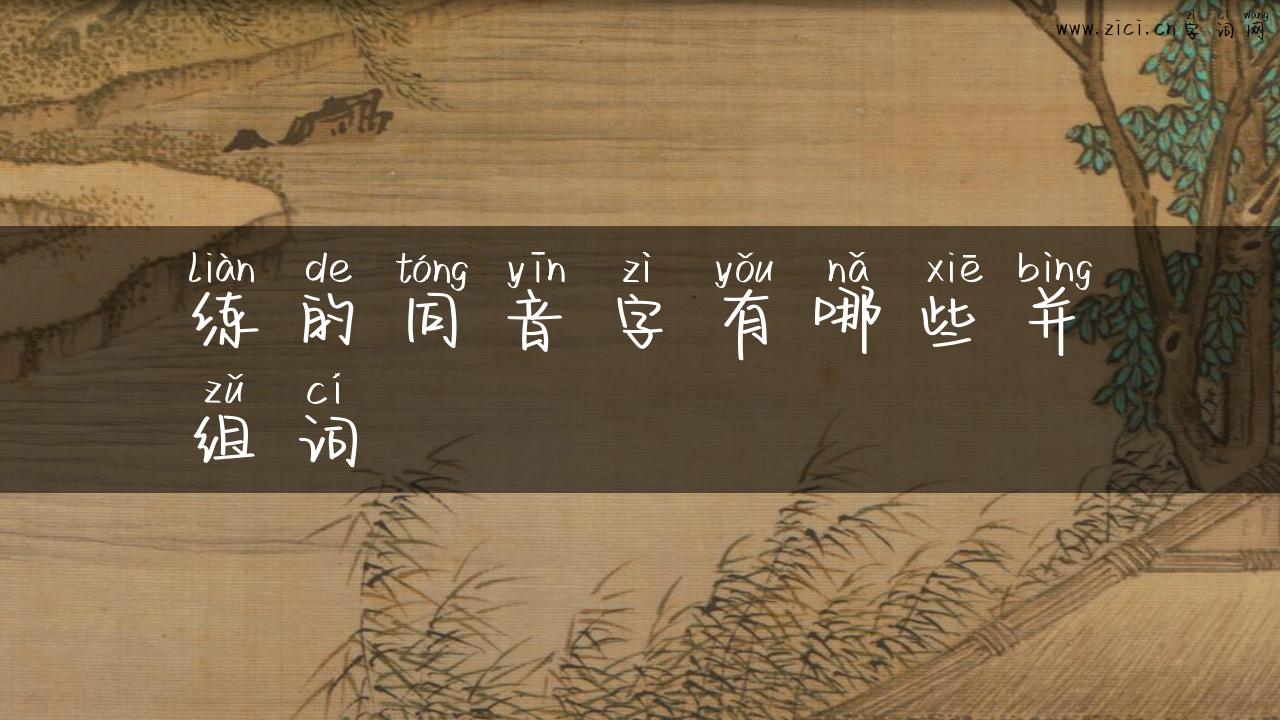 zì cí wǎng
www.zici.cn 字词网
liàn de tóng yīn zì yǒu nǎ xiē bìng
练的同音字有哪些并
zǔ cí
组词